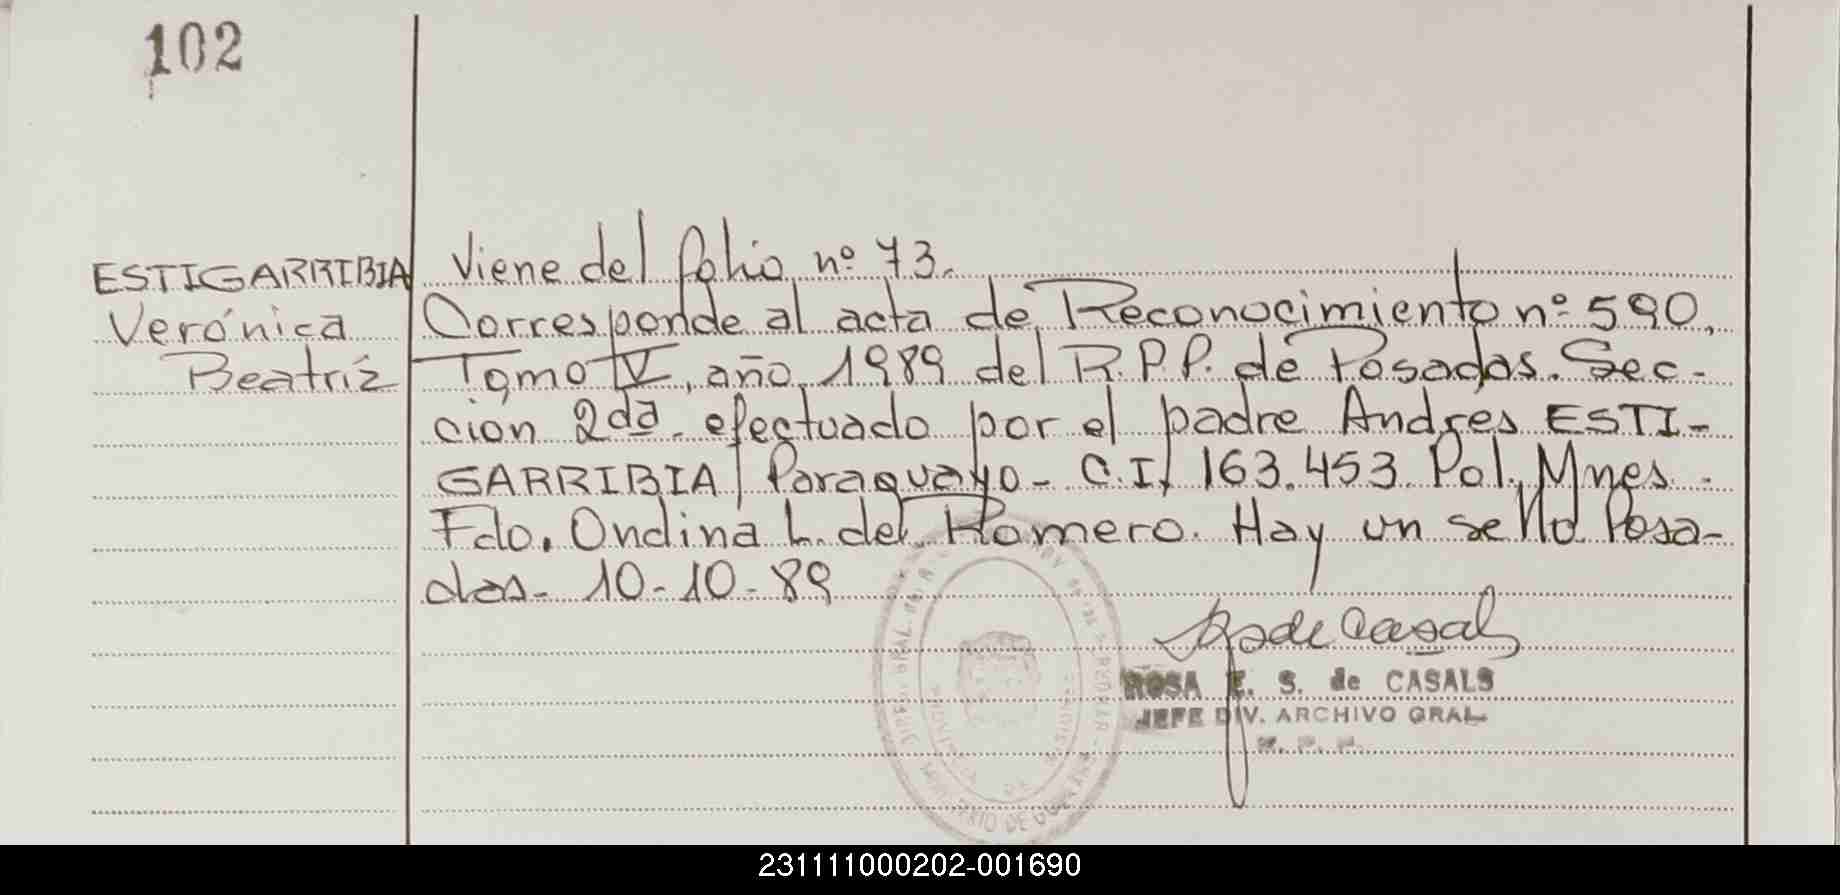 102
ESTIGARRIBIA
Verónica
Beatríz
Viene del folio nº 73.
Corresponde al acta de Reconocimiento nº 590,
Tomo IV, año 1989 del R.P.P. de Posadas. Sec-
ción 2da. efectuado por el padre Andres ESTI-
GARRIBIA Paraguayo - C.I. 163.453 Pol. Mnes.
Fdo. Ondina L. del Romero. Hay un sello Posa-
das - 10 - 10 - 89
ROSA E. S. de CASALS
JEFE DIV. ARCHIVO GRAL.
231111000202-001690